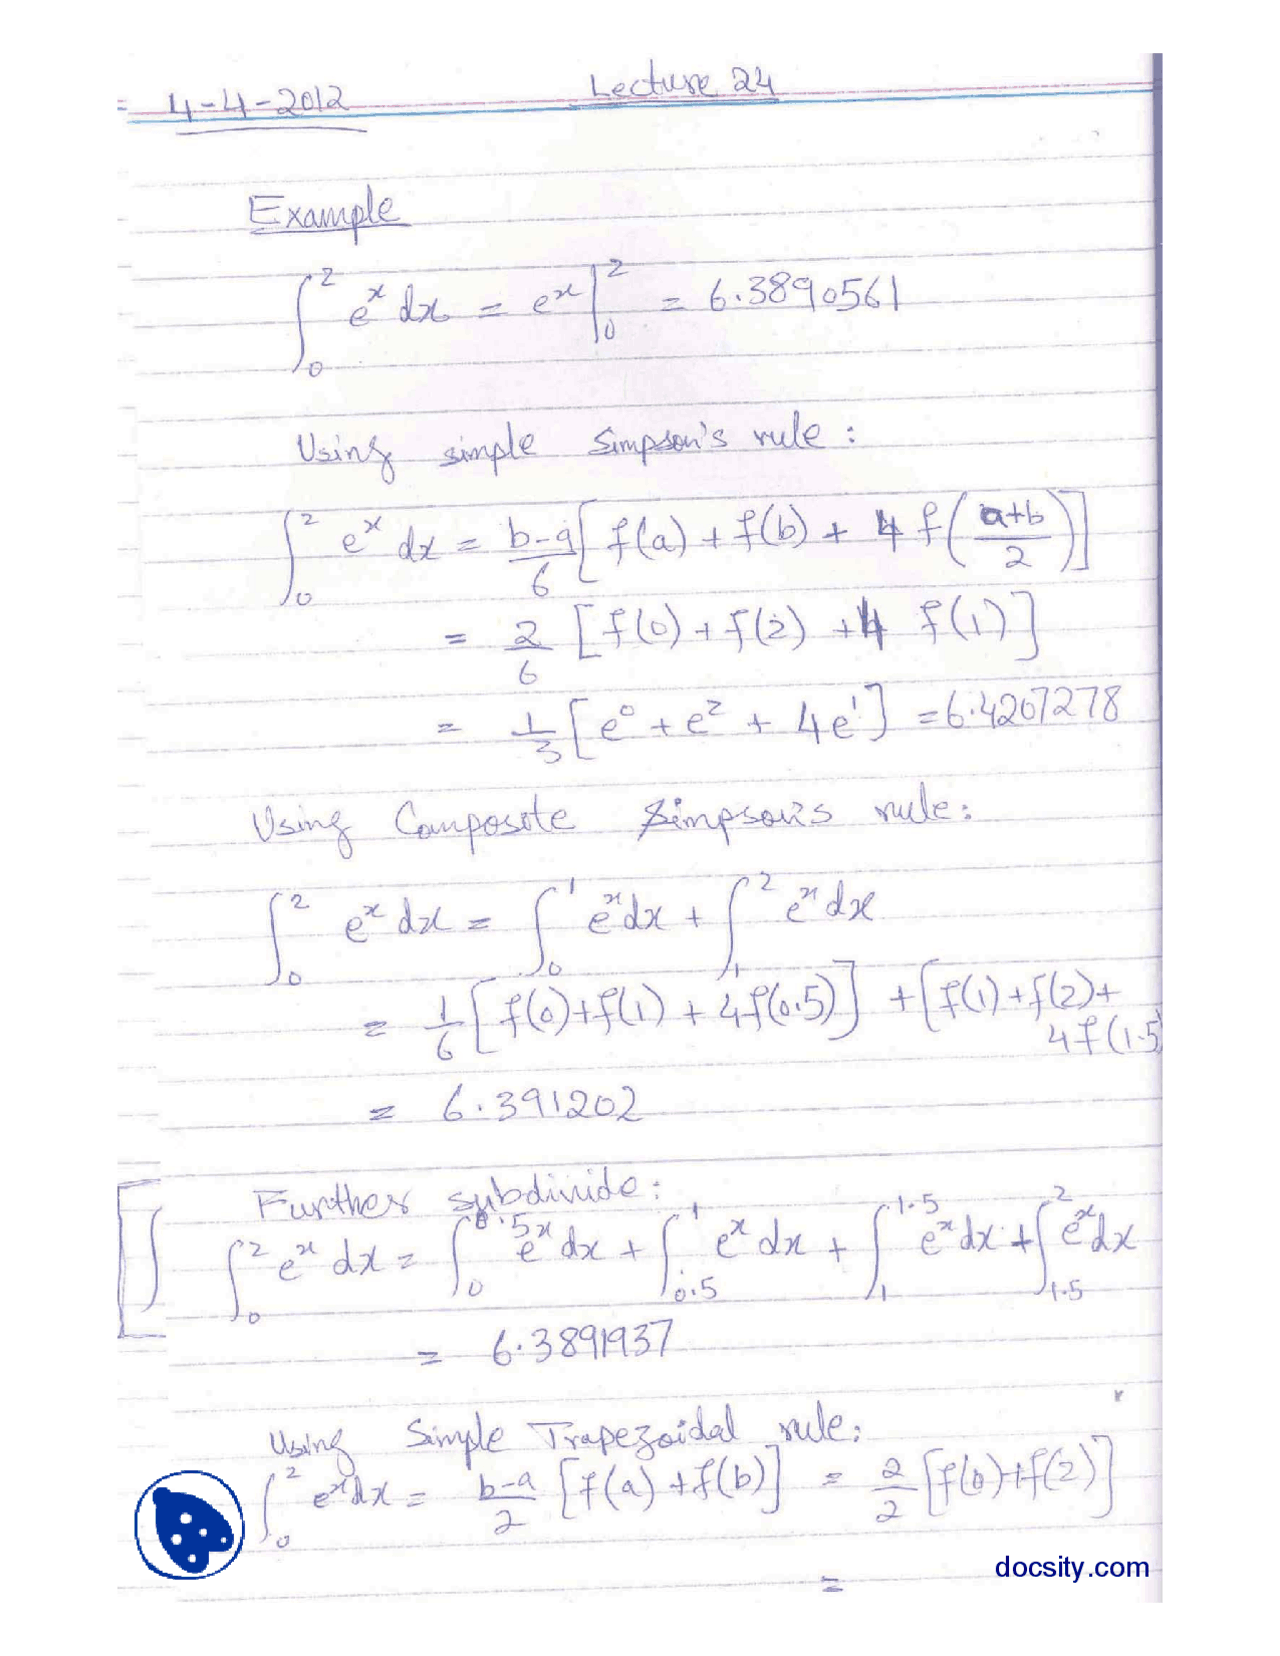 4-4-2012 Lecture 24
Example
∫₀² eˣ dx = eˣ|₀² = 6.3890561
Using simple Simpson's rule:
∫₀² eˣ dx = (b-a)/6 [f(a) + f(b) + 4 f((a+b)/2)]
= 2/6 [f(0) + f(2) + 4 f(1)]
= 1/3 [e⁰ + e² + 4e¹] = 6.4207278
Using Composite Simpson's rule:
∫₀² eˣ dx = ∫₀¹ eˣ dx + ∫₁² eˣ dx
= 1/6 [f(0)+f(1) + 4f(0.5)] + [f(1)+f(2)+
4f(1.5)
= 6.391202
Further subdivide:
∫₀² eˣ dx = ∫₀^0.5 eˣ dx + ∫_0.5^1 eˣ dx + ∫₁^1.5 eˣ dx + ∫_1.5^2 eˣ dx
= 6.3891937
Using Simple Trapezoidal rule:
∫₀² eˣ dx = (b-a)/2 [f(a) + f(b)] = 2/2 [f(0)+f(2)]
=
docsity.com